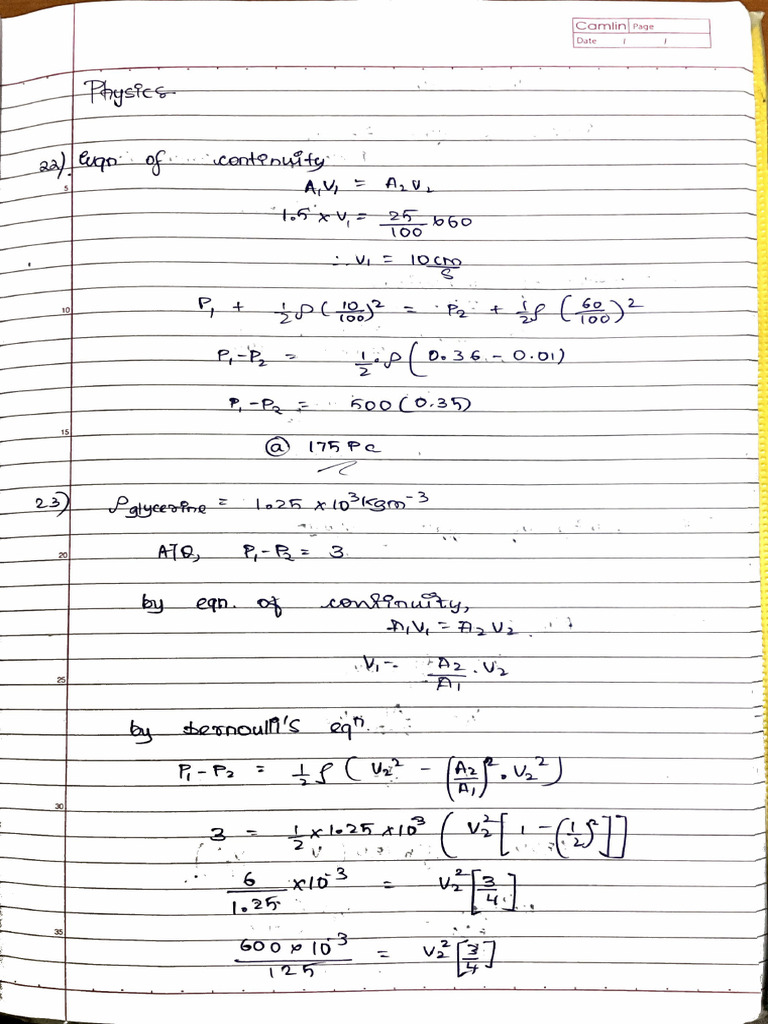 Camlin Page
Date / /
Physics
22) Eqn of continuity
5
A₁V₁ = A₂V₂
1.5 × V₁ = 25/100 × 60
∴ V₁ = 10 cm/s
10
P₁ + 1/2 ρ (10/100)² = P₂ + 1/2 ρ (60/100)²
P₁-P₂ = 1/2 ρ (0.36 - 0.01)
P₁-P₂ = 500 (0.35)
15
ⓐ 175 Pa
23) ρglycerine = 1.25 × 10³ kgm⁻³
20
ATQ, P₁-P₂ = 3
by eqn. of continuity,
A₁V₁ = A₂V₂
V₁ = A₂/A₁ . V₂
25
by bernoulli's eqⁿ
P₁-P₂ = 1/2 ρ (V₂² - (A₂/A₁)² . V₂²)
30
3 = 1/2 × 1.25 × 10³ (V₂² [1 - (1/2)²]]
6/1.25 × 10⁻³ = V₂² [3/4]
35
600 × 10⁻³/125 = V₂² [3/4]